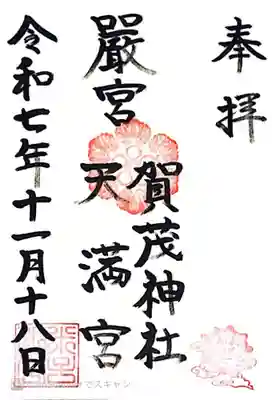 奉拝
賀茂神社
嚴宮
天満宮
令和七年十一月十八日
でスキャン